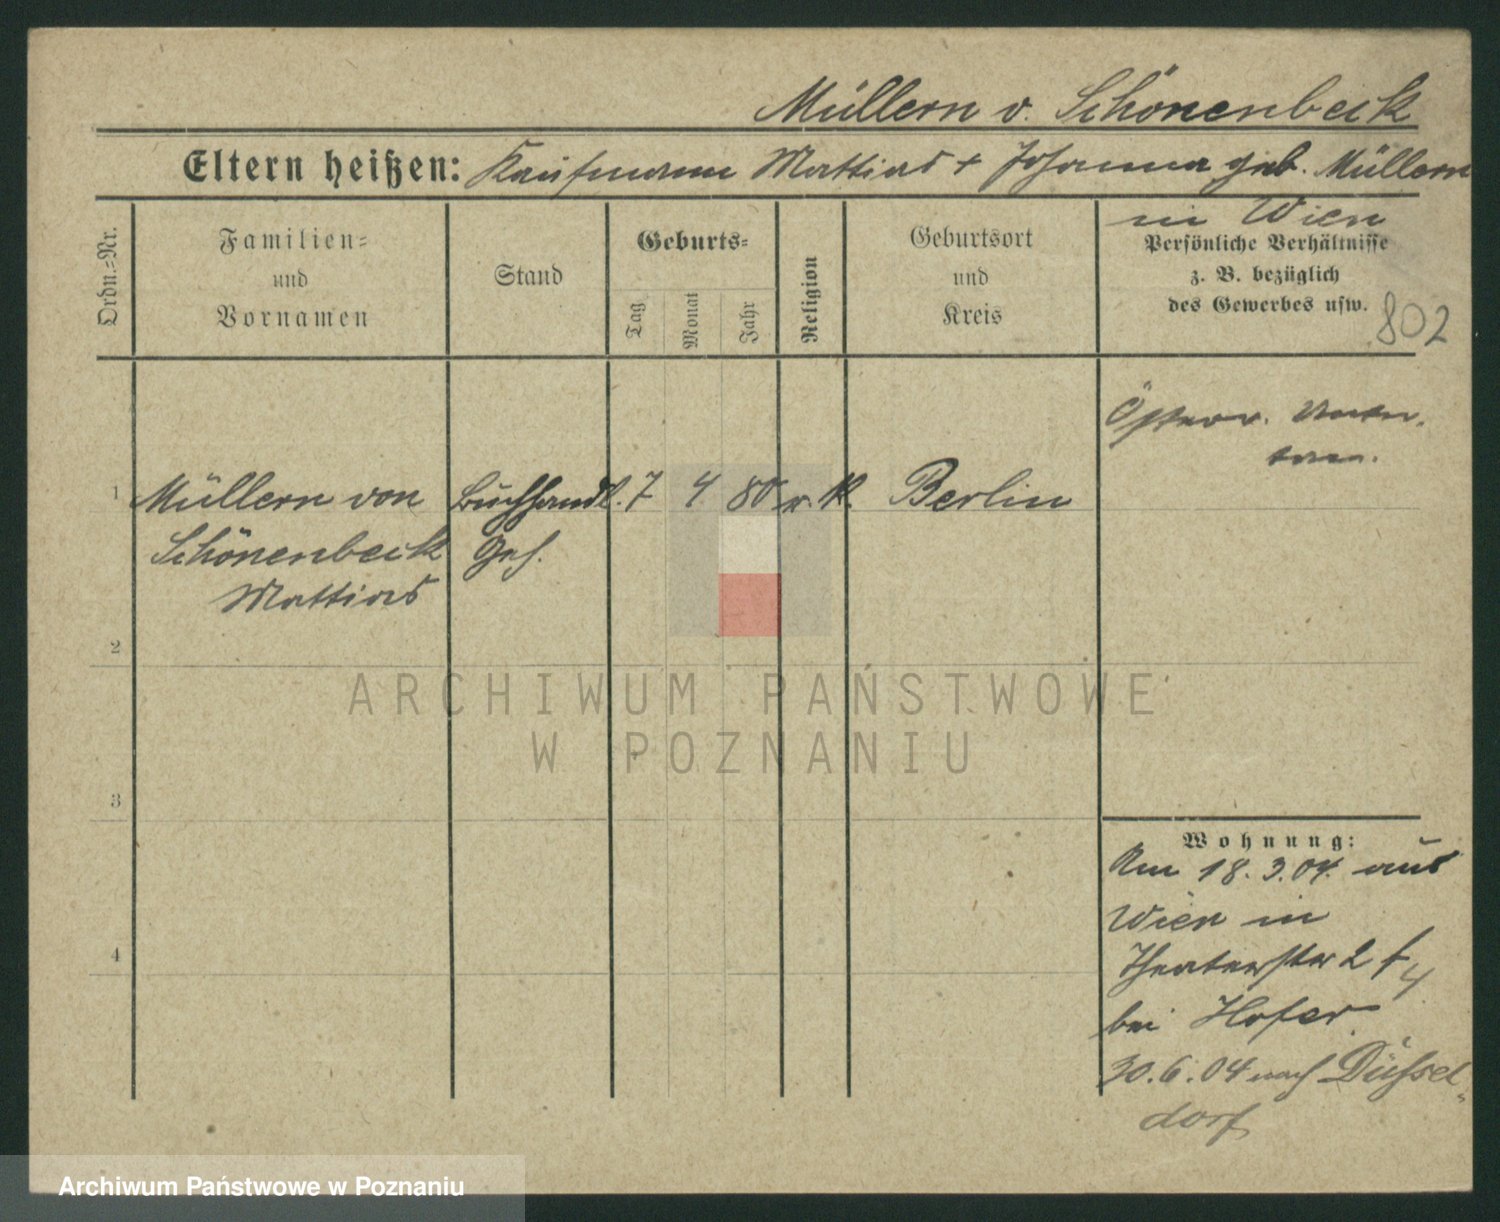 Müllern v. Schönenbeck
Eltern heißen: Kaufmann Mattias + Johanna geb. Müllern
in Wien
Ordn.=Nr.
Familien=
und
Vornamen
Stand
Geburts=
Tag
Monat
Jahr
Religion
Geburtsort
und
Kreis
Persönliche Verhältnisse
z. B. bezüglich
des Gewerbes usw.
802
Österr. Unter-
tan.
1 Müllern von Buchhandl. 7 4 80 r. k. Berlin
Schönenbeck Geh.
Mattias
2
ARCHIWUM PAŃSTWOWE
W POZNANIU
3
Wohnung:
Am 18.3.04. aus
Wien in
4
Theaterstr 2
bei Hofer
30.6.04 nach Düssel-
dorf
Archiwum Państwowe w Poznaniu